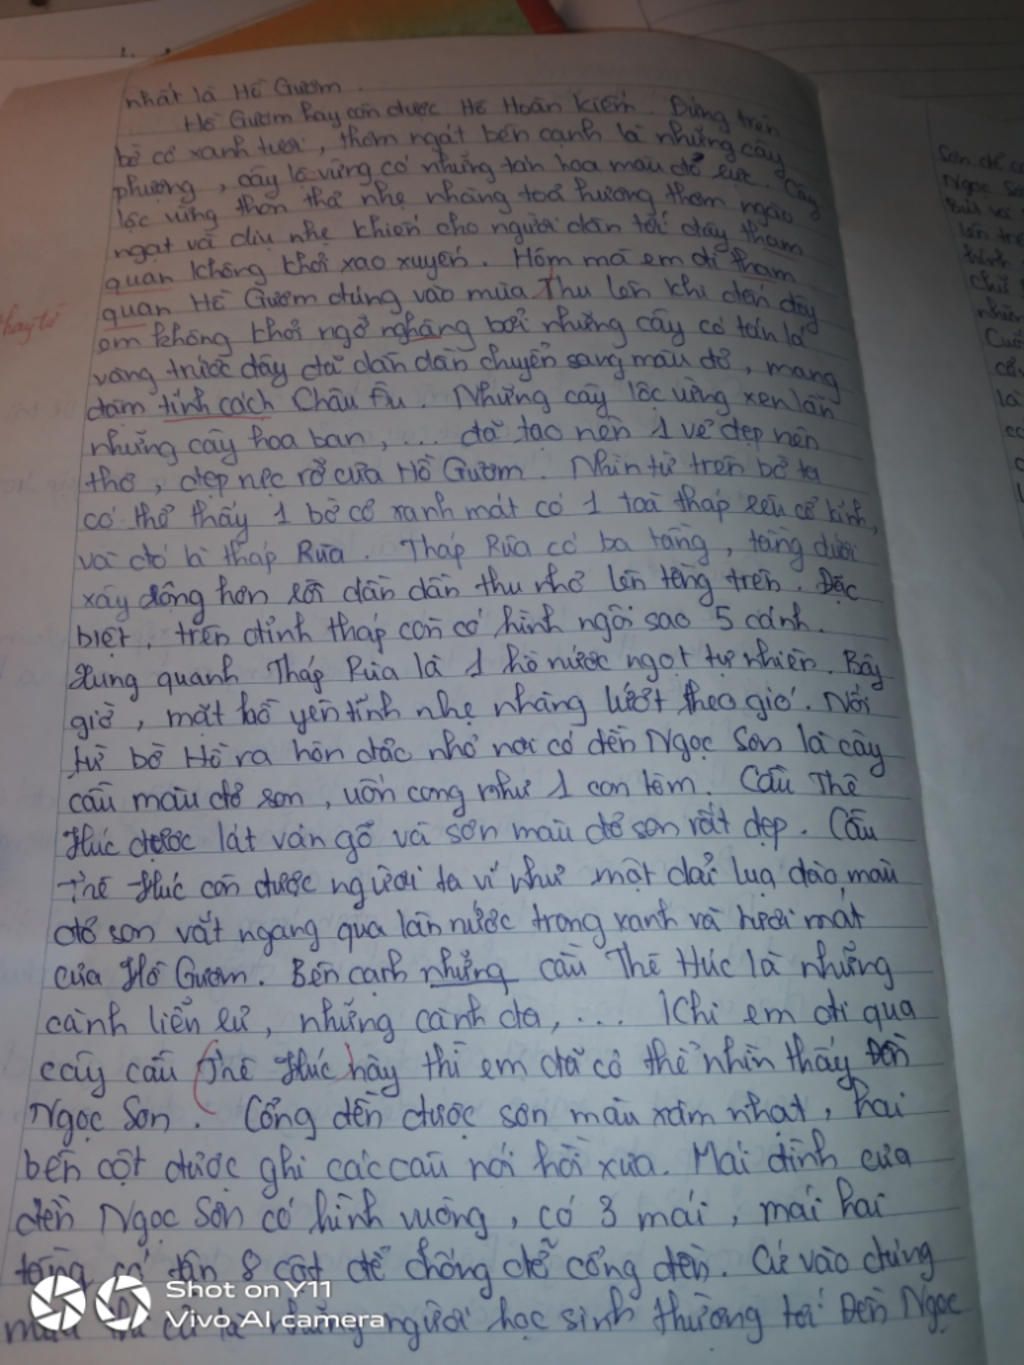 nhất là Hồ Gươm.
Hồ Gươm hay còn được Hồ Hoàn Kiếm. Đứng trên
bờ cỏ xanh tươi, thơm ngát bên cạnh là những cây
phượng, cây lộc vừng có những tán hoa màu đỏ rực. Cây
lộc vừng thơn thả nhẹ nhàng toả hương thơm ngào
ngạt và dịu nhẹ khiến cho người dân tới đây tham
quan không khỏi xao xuyến. Hôm mà em đi tham
quan Hồ Gươm đúng vào mùa Thu lên khi đến đây
thay từ
em không khỏi ngỡ nghàng bởi những cây có tán lá
vàng trước đây đã dần dần chuyển sang màu đỏ, mang
đậm tính cách Châu Âu. Những cây lộc vừng xen lẫn
những cây hoa ban, ... đã tạo nên 1 vẻ đẹp nên
thơ, đẹp nực rỡ của Hồ Gươm. Nhìn từ trên bờ ta
có thể thấy 1 bờ cỏ xanh mát có 1 toà tháp rêu cổ kính,
và đó là tháp Rùa. Tháp Rùa có ba tầng, tầng dưới
xây rộng hơn rồi dần dần thu nhỏ lên tầng trên. Đặc
biệt, trên đỉnh tháp còn có hình ngôi sao 5 cánh.
Xung quanh Tháp Rùa là 1 hồ nước ngọt tự nhiên. Bây
giờ, mặt hồ yên tĩnh nhẹ nhàng lướt theo gió. Nối
từ bờ Hồ ra hòn đảo nhỏ nơi có đền Ngọc Sơn là cây
cầu màu đỏ son, uốn cong như 1 con tôm. Cầu Thê
Húc được lát ván gỗ và sơn màu đỏ son rất đẹp. Cầu
Thê Húc còn được người ta ví như một dải lụa đào màu
đỏ son vắt ngang qua làn nước trong xanh và tươi mát
của Hồ Gươm. Bên cạnh những cầu Thê Húc là những
cành liễu rủ, những cành đa, ... Khi em đi qua
cây cầu Thê Húc này thì em đã có thể nhìn thấy Đền
Ngọc Sơn. Cổng đền được sơn màu xám nhạt, hai
bên cột được ghi các câu nói hồi xưa. Mái đình của
đền Ngọc Sơn có hình vuông, có 3 mái, mái hai
tầng có tận 8 cột để chống đỡ cổng đền. Cứ vào đúng
người học sinh thường tới Đền Ngọc
Shot on Y11
Vivo AI camera